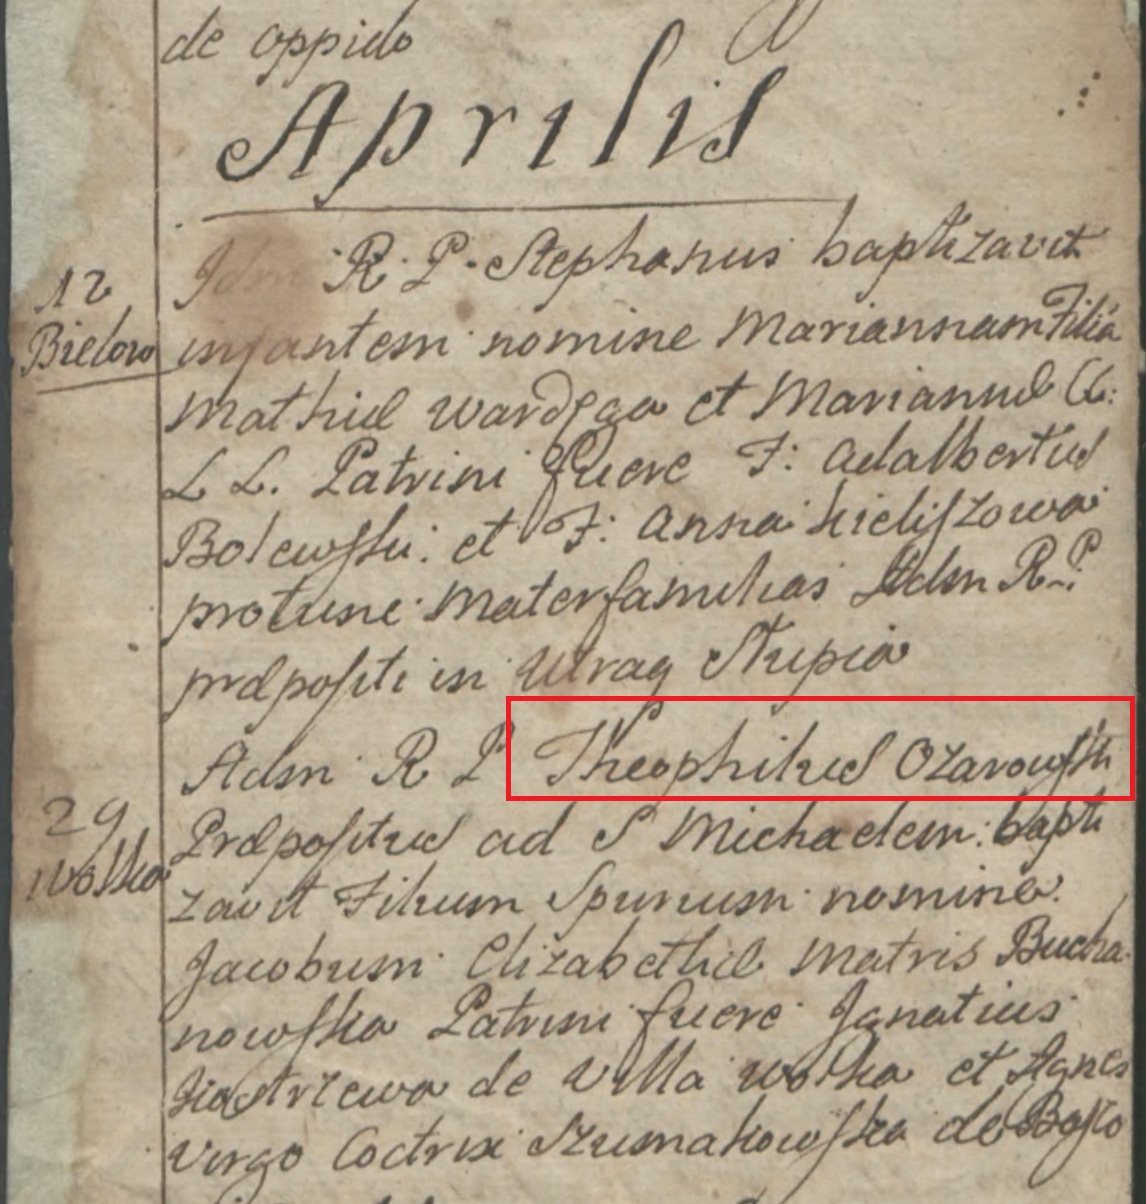 de oppido
Aprilis
12
Bielow
Idm R. P. Stephanus baptizavit
infantem nomine Mariannam Filiã
Mathiæ Wardęga et Mariannæ CC:
L L. Patrini fuere F: Adalbertus
Bolewski. et F: Anna Kieliszowa
protunc Materfamilias Adm R. P
præpositi in Słupia
Adm R P Theophilus Ozarowski
29
Wolka
Præpositus ad S Michaelem. bapti
zavit Filium Spurium nomine.
Jacobum Elizabethæ Matris Bucha
nowska Patrini fuere Ignatius
Kostrzewa de Villa Wolka et Agnes
Virgo Coctrix Szumakowska de